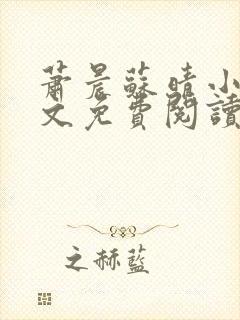 蕭晨蘇晴小
文免費閱讀
之赫藍